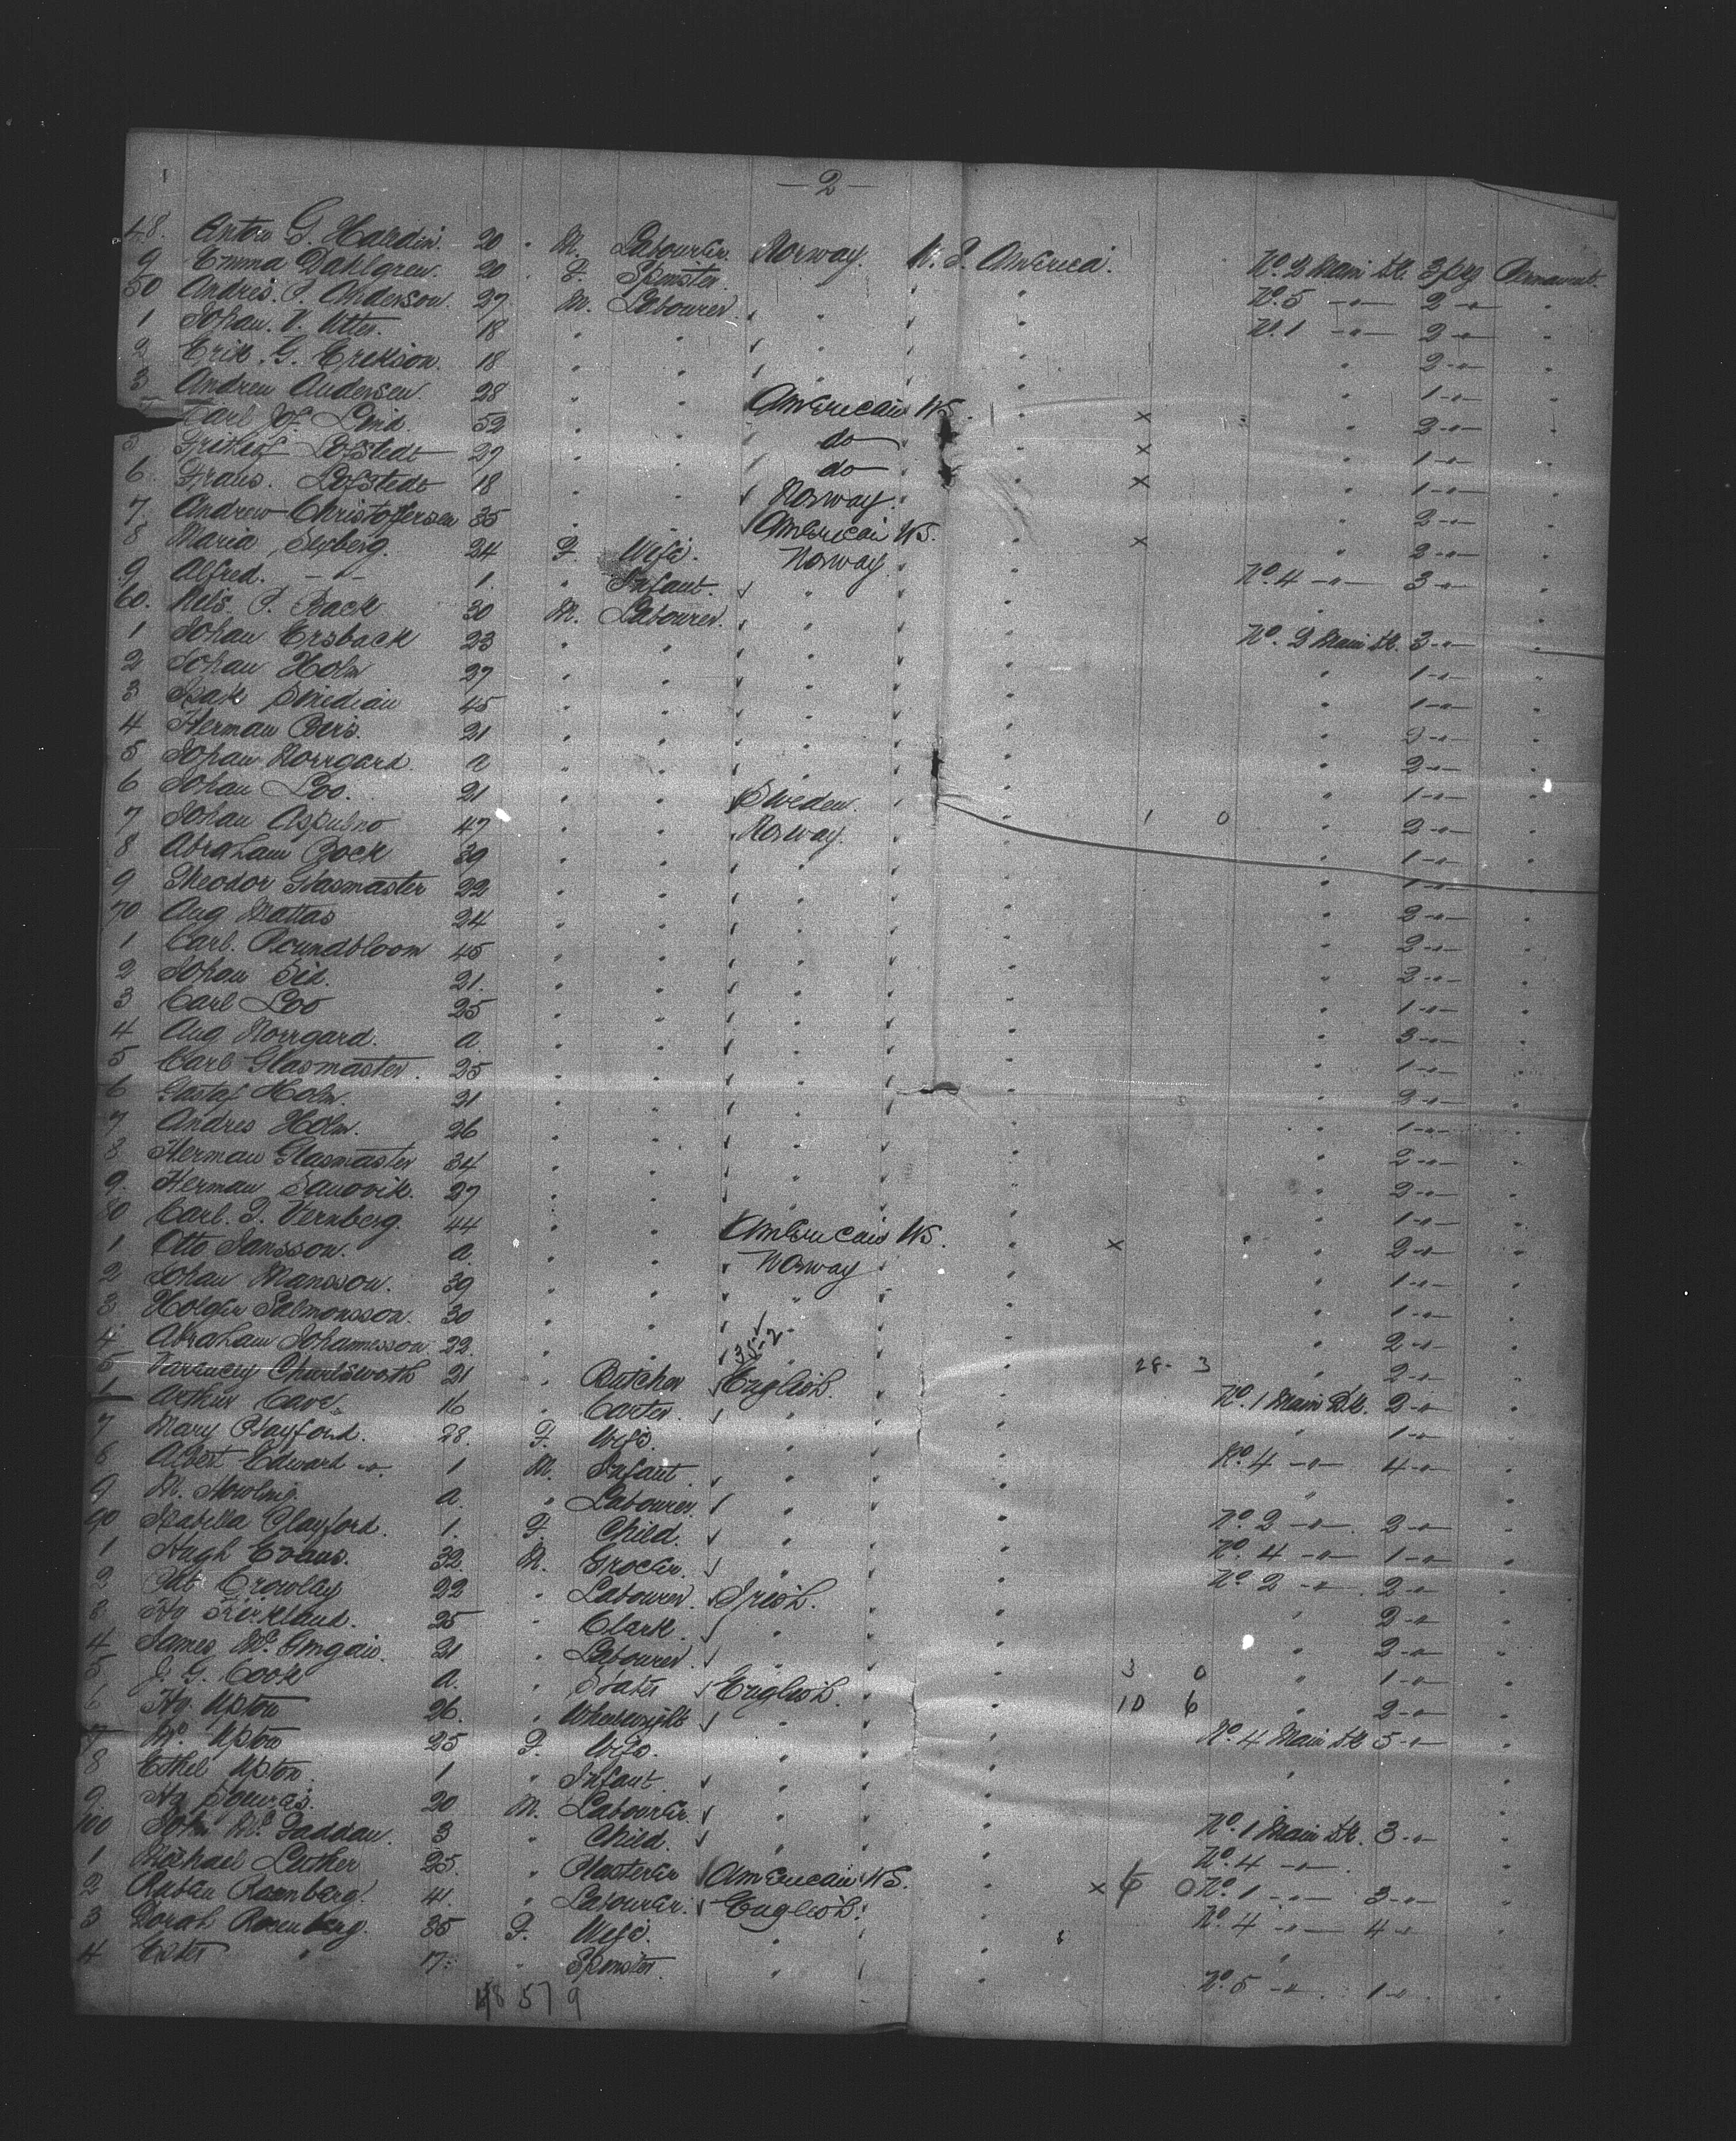 — 2 —
48. Anton G. Haldin. 20 " M. Labourer. Norway. U. S. America. No. 2 Main Dk. 3 pcg Permanent.
9 Emma Dahlgren. 20 " F. Spinster. " " No. 5 —"— 2 —"— "
50 Andres. P. Anderson. 27 M. Labourer. " " No. 1 —"— 2 —"— "
1 Johan. V. Utter. 18 " " " " " 2 —"— "
2 Erik. G. Erekson. 18 " " " " " 1 —"— "
3 Andrew Andersen. 28 " " American US. " x " 2 —"— "
Carl Jof. Lind. 52 " " do " x " 1 —"— "
5 Frithiof Lofstedt 27 " " do " x " 1 —"— "
6. Frans. Lofstedt 18 " " Norway. " " 2 —"— "
7. Andrew Christofersen 35 " " American US. " x " 2 —"— "
8 Maria Sexberg. 24 F. Wife. Norway. " No. 4 —"— 3 —"— "
9 Alfred. —"— 1. " Infant. " " " "
60. Nels. P. Back 30 M. Labourer. " " No. 2 Main Dk. 3 —"— "
1 Johan Ersback 23 " " " " " 1 —"— "
2 Johan Holm 27 " " " " " 1 —"— "
3 Isak 45 " " " " " "
4 Herman 21 " " " " " 2 —"— "
5 Johan Norrgard. a " " " " " 1 —"— "
6 Johan Loo. 21 " " Sweden. " 1 0 " 2 —"— "
7 Johan 47 " " Norway. " " 1 —"— "
8 Abraham Bock 39 " " " " " 1 —"— "
9 Theodor Glasmaster 22 " " " " " 2 —"— "
70 Aug Mattas 24 " " " " " 2 —"— "
1 Carl. Roundbloom 45 " " " " " 2 —"— "
2 Johan 21. " " " " " 1 —"— "
3 Carl Loo 25 " " " " " 3 —"— "
4 Aug Norrgard. a " " " " " 1 —"— "
5 Carl Glasmaster. 25 " " " " " 2 —"— "
6 Gustaf Holm. 21 " " " " " 1 —"— "
7 Andres Holm. 26 " " " " " 2 —"— "
8 Herman Glasmaster 34 " " " " " 2 —"— "
9. Herman Sandvik. 27 " " " " " 1 —"— "
80 Carl. J. Vernberg. 44 " " American US. " x " 2 —"— "
1 Otto Jansson. a. " " Norway " " 1 —"— "
2 Johan Mansson. 39 " " " " " 1 —"— "
3 Holger Salmonsson. 30 " " " " " 2 —"— "
4 Abraham Johannesson. 22. " " 35-2 " 28- 3 " 2 —"— "
5 Charlsworth 21 " Butcher English. " No. 1 Main Dk. 2 —"— "
Arthur Cave. 16 " Carter. " " " 1 —"— "
7 Mary Clayford. 28. F. Wife. " " No. 4 —"— 4 —"— "
8 Albert Edward —"— 1 M. Infant " " " "
9 M. Howling. a. " Labourer. " " No. 2 —"— 2 —"— "
90 Isabella Clayford. 1. F. Child. " " No. 4 —"— 1 —"— "
1 Hugh Evans. 32. M. Grocer. " " No. 2 —"— 2 —"— "
2 Crowley 22 " Labourer. Irish. " " 2 —"— "
3 Hy Kirkland. 25 " Clark. " " " 2 —"— "
4 James Mc. 21 " Labourer. " " 3 0 " 1 —"— "
5 J. G. Cook a. " English. " 10 6 " 2 —"— "
6 Hy. Upton 26. " Wheelwright " " No. 4 Main Dk 5 —"— "
7 Upton 25 F. Wife. " " " "
8 Ethel Upton. 1 " Infant. " " "
9 Hy 20 M. Labourer. " " No. 1 Main Dk. 3 —"— "
100 John Mc. Faddan. 3 " Child. " " No. 4 —"—. "
1 Michael Luther 25. " Plasterer American US. " x 6 0 No. 1 —"— 3 —"— "
2 Ruben Rosenberg. 41. " Labourer. English. " No. 4 —"— 4 —"— "
3 Dorah Rosenberg. 35 F. Wife. " " " "
4 Ester " 17. " Spinster. " " No. 5 —"—. 1 —"—. "
48 57 9